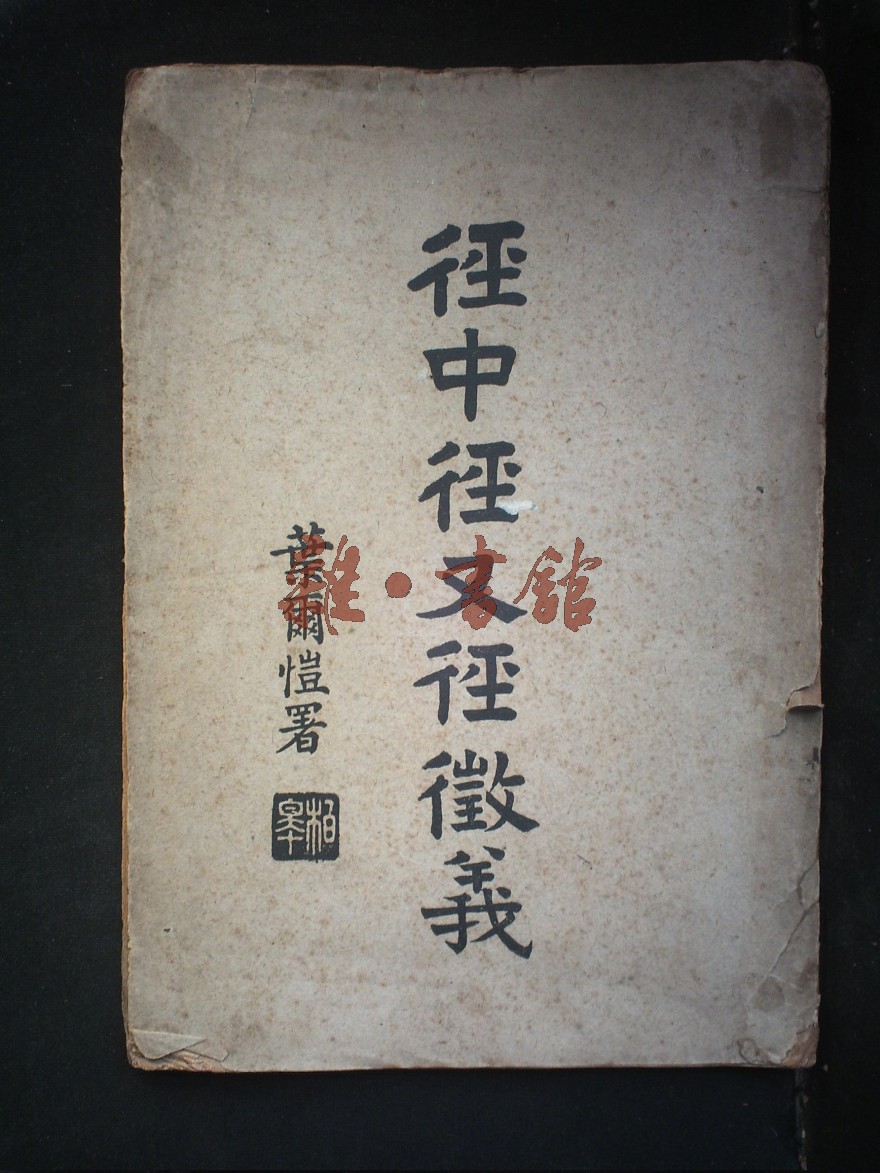 徑中徑又徑徵義
葉爾愷署
柏皋
雜·書館